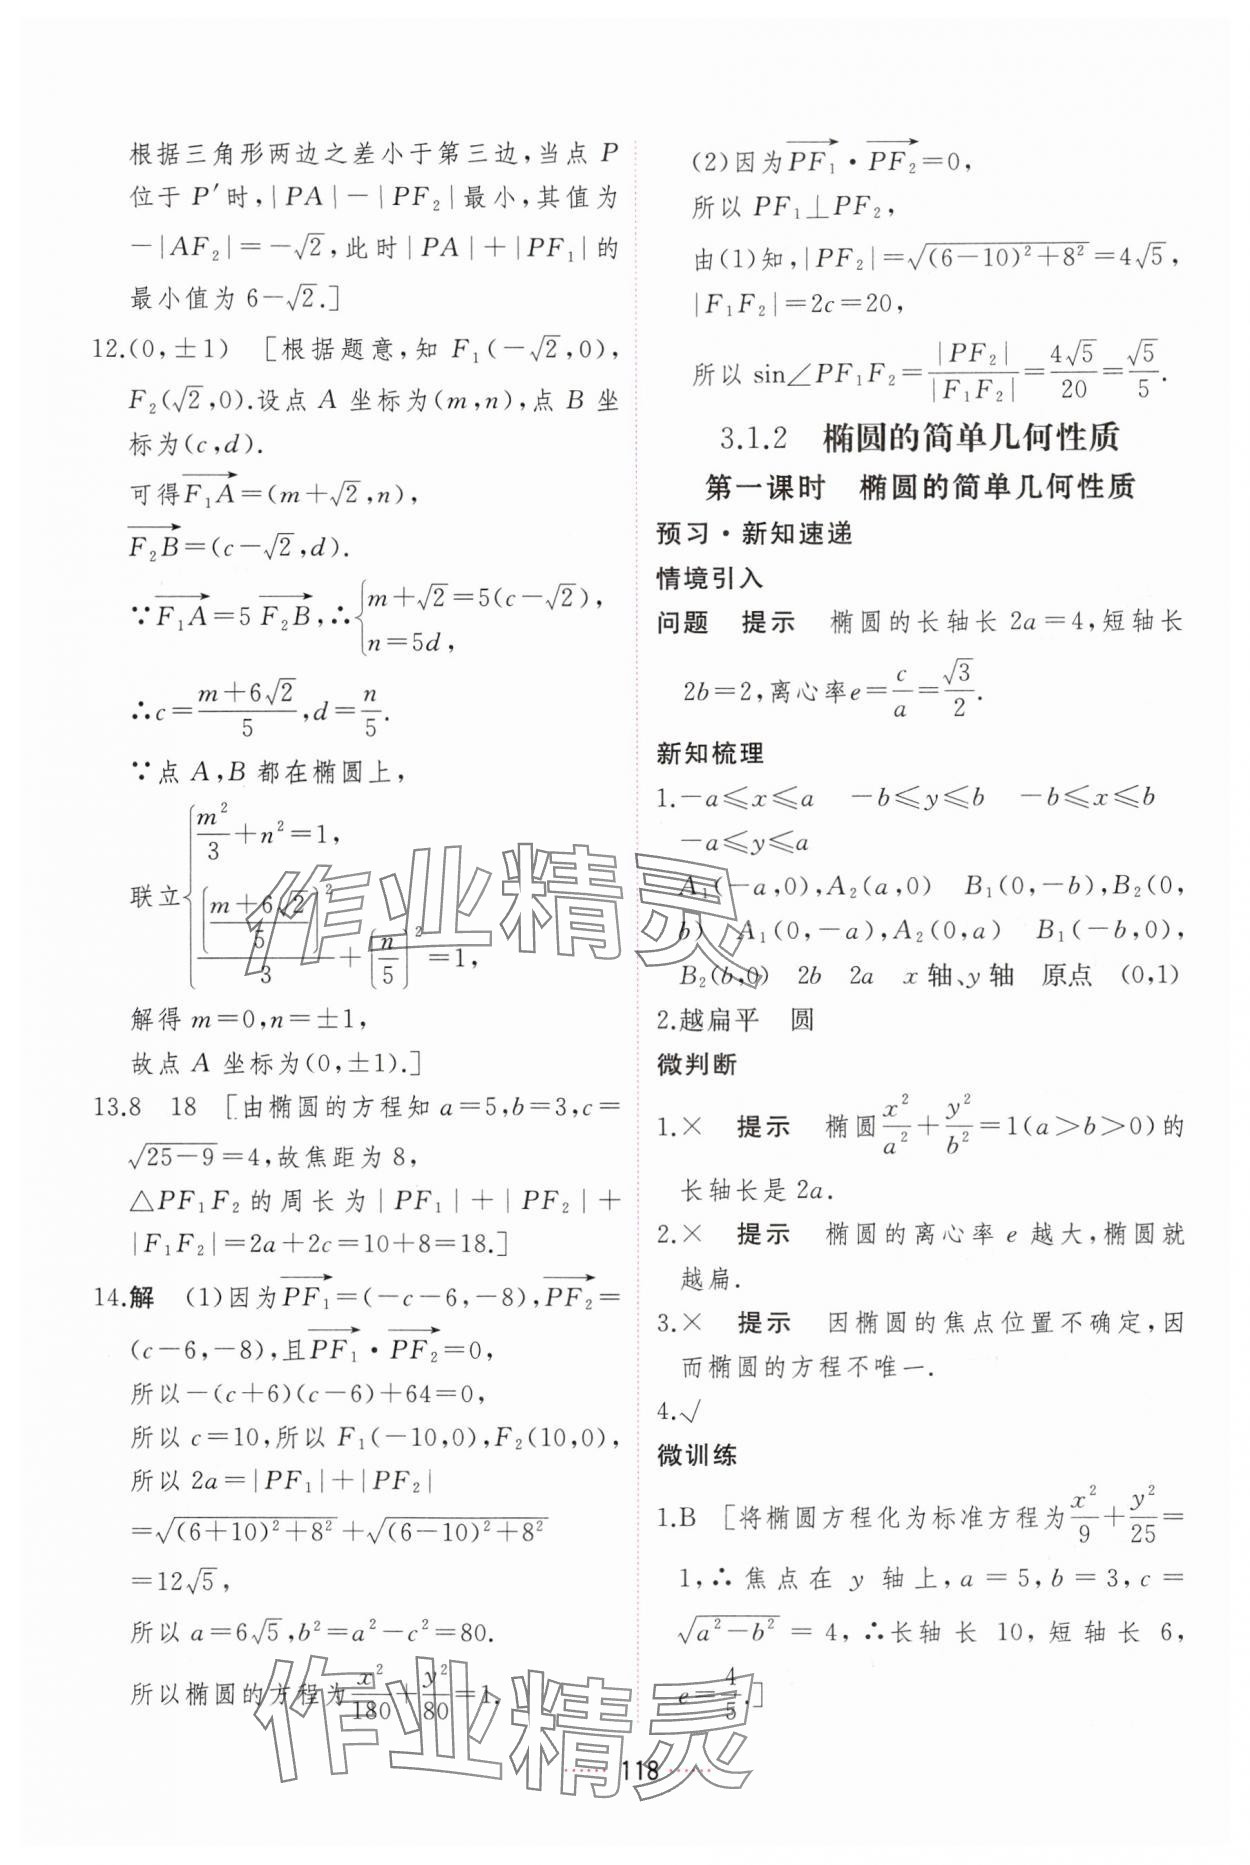 根据三角形两边之差小于第三边,当点 P
位于 P′时,|PA|－|PF₂|最小,其值为
－|AF₂|＝－√2,此时|PA|＋|PF₁|的
最小值为 6－√2.]
12.(0,±1) [根据题意,知 F₁(－√2,0),
F₂(√2,0).设点 A 坐标为(m,n),点 B 坐
标为(c,d).
可得F₁A→＝(m＋√2,n),
F₂B→＝(c－√2,d).
∵F₁A→＝5 F₂B→,∴{m＋√2＝5(c－√2), n＝5d,
∴c＝(m＋6√2)/5,d＝n/5.
∵点 A,B 都在椭圆上,
联立{m²/3＋n²＝1, ((m＋6√2)/5)²/3＋(n/5)²＝1,
解得 m＝0,n＝±1,
故点 A 坐标为(0,±1).]
13.8 18 [由椭圆的方程知 a＝5,b＝3,c＝
√(25－9)＝4,故焦距为 8,
△PF₁F₂的周长为|PF₁|＋|PF₂|＋
|F₁F₂|＝2a＋2c＝10＋8＝18.]
14.解 (1)因为PF₁→＝(－c－6,－8),PF₂→＝
(c－6,－8),且PF₁→·PF₂→＝0,
所以－(c＋6)(c－6)＋64＝0,
所以 c＝10,所以 F₁(－10,0),F₂(10,0),
所以 2a＝|PF₁|＋|PF₂|
＝√((6＋10)²＋8²)＋√((6－10)²＋8²)
＝12√5,
所以 a＝6√5,b²＝a²－c²＝80.
所以椭圆的方程为x²/180＋y²/80＝1.
(2)因为PF₁→·PF₂→＝0,
所以 PF₁⊥PF₂,
由(1)知,|PF₂|＝√((6－10)²＋8²)＝4√5,
|F₁F₂|＝2c＝20,
所以 sin∠PF₁F₂＝|PF₂|/|F₁F₂|＝4√5/20＝√5/5.
3.1.2 椭圆的简单几何性质
第一课时 椭圆的简单几何性质
预习·新知速递
情境引入
问题 提示 椭圆的长轴长 2a＝4,短轴长
2b＝2,离心率e＝c/a＝√3/2.
新知梳理
1.－a≤x≤a －b≤y≤b －b≤x≤b
－a≤y≤a
A₁(－a,0),A₂(a,0) B₁(0,－b),B₂(0,
b) A₁(0,－a),A₂(0,a) B₁(－b,0),
B₂(b,0) 2b 2a x 轴、y 轴 原点 (0,1)
2.越扁平 圆
微判断
1.× 提示 椭圆x²/a²＋y²/b²＝1(a＞b＞0)的
长轴长是 2a.
2.× 提示 椭圆的离心率 e 越大,椭圆就
越扁.
3.× 提示 因椭圆的焦点位置不确定,因
而椭圆的方程不唯一.
4.√
微训练
1.B [将椭圆方程化为标准方程为x²/9＋y²/25＝
1,∴焦点在 y 轴上,a＝5,b＝3,c＝
√(a²－b²)＝4,∴长轴长 10,短轴长 6,
e＝4/5.]
118
作业精灵
作业精灵